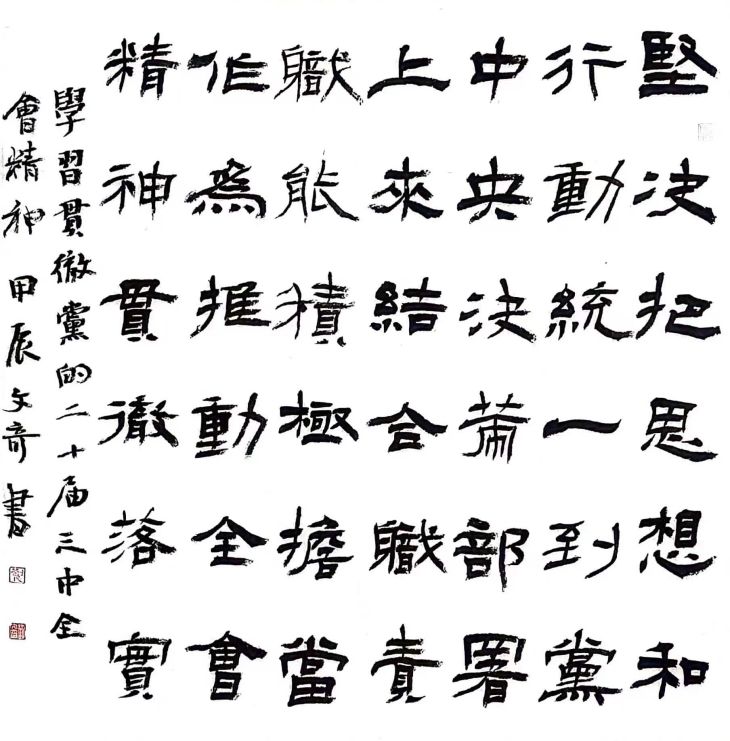 堅决把思想和
行動統一到黨
中央决策部署
上來結合職責
職能積極擔當
作為推動全會
精神貫徹落實
學習貫徹黨的二十届三中全
會精神 甲辰文奇書